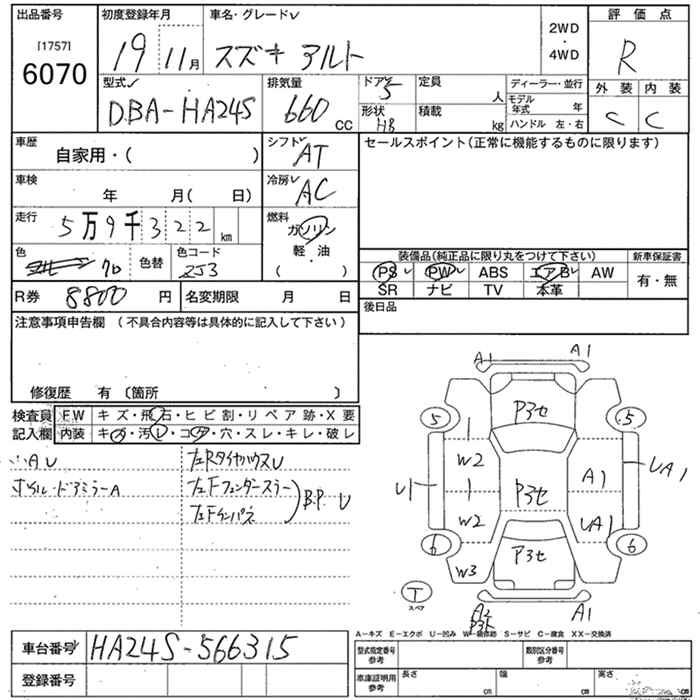 出品番号 初度登録年月 車名・グレード 2WD・4WD 評価点
[1757] 6070 19 11月 スズキ アルト R
型式 排気量 ドア 5 定員 人 ディーラー・並行 外装 内装
DBA-HA24S 660 CC 形状 HB 積載 kg モデル年式 年 ハンドル 左・右 C C
車歴 自家用・( ) シフト AT セールスポイント(正常に機能するものに限ります)
車検 年 月( 日) 冷房 AC
走行 5万9千322 km 燃料 ガソリン 軽・油 ( )
色 クロ 色替 色コード ZJ3
装備品(純正品に限り丸をつけて下さい) 新車保証書
PS PW ABS エアB AW 有・無
SR ナビ TV 本革
R券 8800 円 名変期限 月 日 後日品
注意事項申告欄 (不具合内容等は具体的に記入して下さい)
修復歴 有 〔箇所 〕
検査員記入欄 F.W キズ・飛石・ヒビ割・リペア跡・X要
内装 キズ・汚レ・コゲ・穴・スレ・キレ・破レ
左RタイヤハウスU
左Fフェンダー
左Fインパネ
B.P. U
A1 A1
P3セ
5 5
W2 A1 UA1
U1 P3セ
W2 UA1
6 P3セ 6
W3
T スペア
A2 A1
A-キズ E-エクボ U-凹み W-補修跡 S-サビ C-腐食 XX-交換済
車台番号 HA24S-566315 型式指定番号 参考 類別区分番号 参考
登録番号 車庫証明用 参考 長さ cm 幅 cm 高さ cm